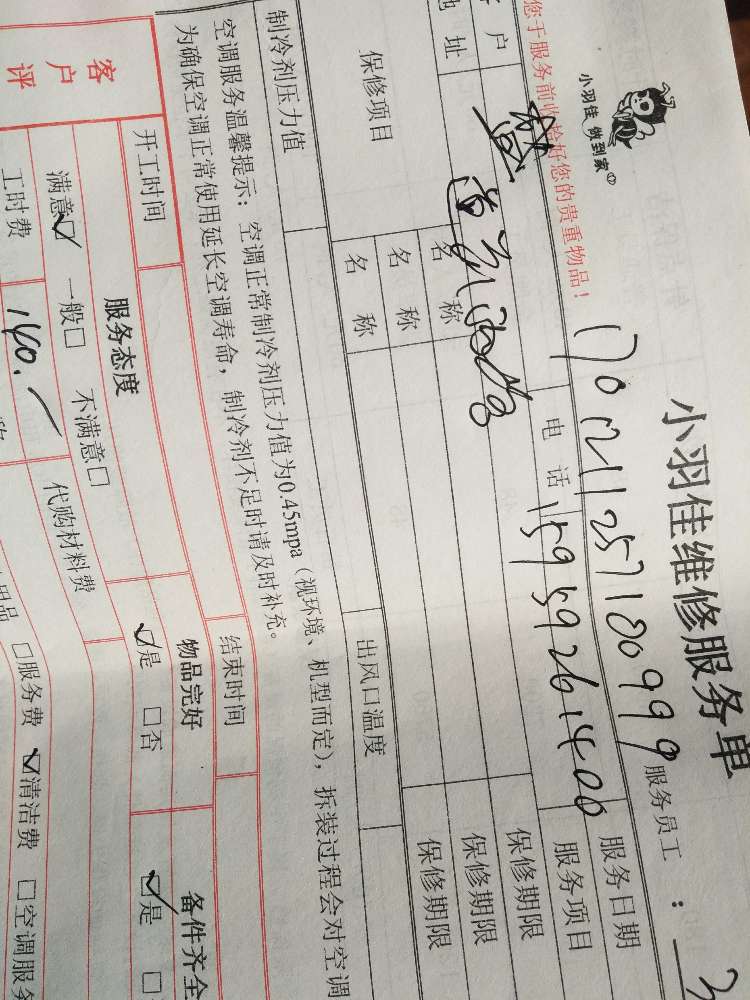 小羽佳 做到家
小羽佳维修服务单
服务员工：
您于服务前收拾好您的贵重物品！
170211257180999
服务日期
户
电话 15959261400 服务项目
地址
保修项目 名称 保修期限
名称 保修期限
名称 保修期限
制冷剂压力值 出风口温度
空调服务温馨提示：空调正常制冷剂压力值为0.45mpa（视环境、机型而定），拆装过程会对空调
为确保空调正常使用延长空调寿命，制冷剂不足时请及时补充。
开工时间 结束时间
客户评
服务态度 物品完好 备件齐全
满意☑ 一般□ 不满意□ ☑是 □否 ☑是 □
工时费 140. 代购材料费
用品 □服务费 ☑清洁费 □空调服务